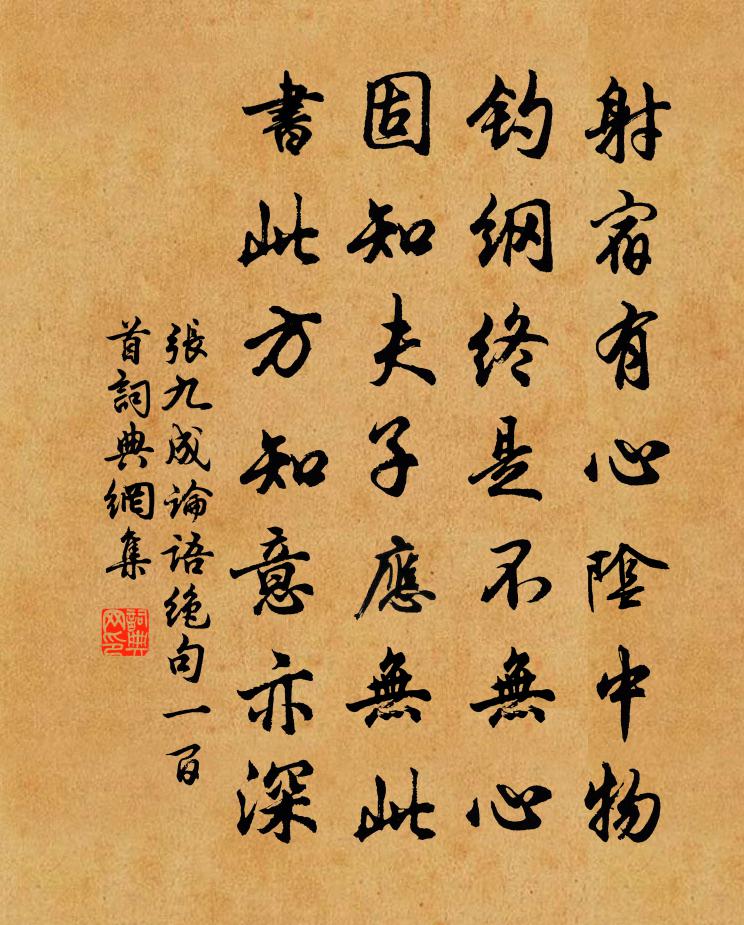 射宿有心陰中物
釣網終是不無心
固知夫子應無此
書此方知意亦深
張九成論語絶句一百
首詞典網集
詞典網印